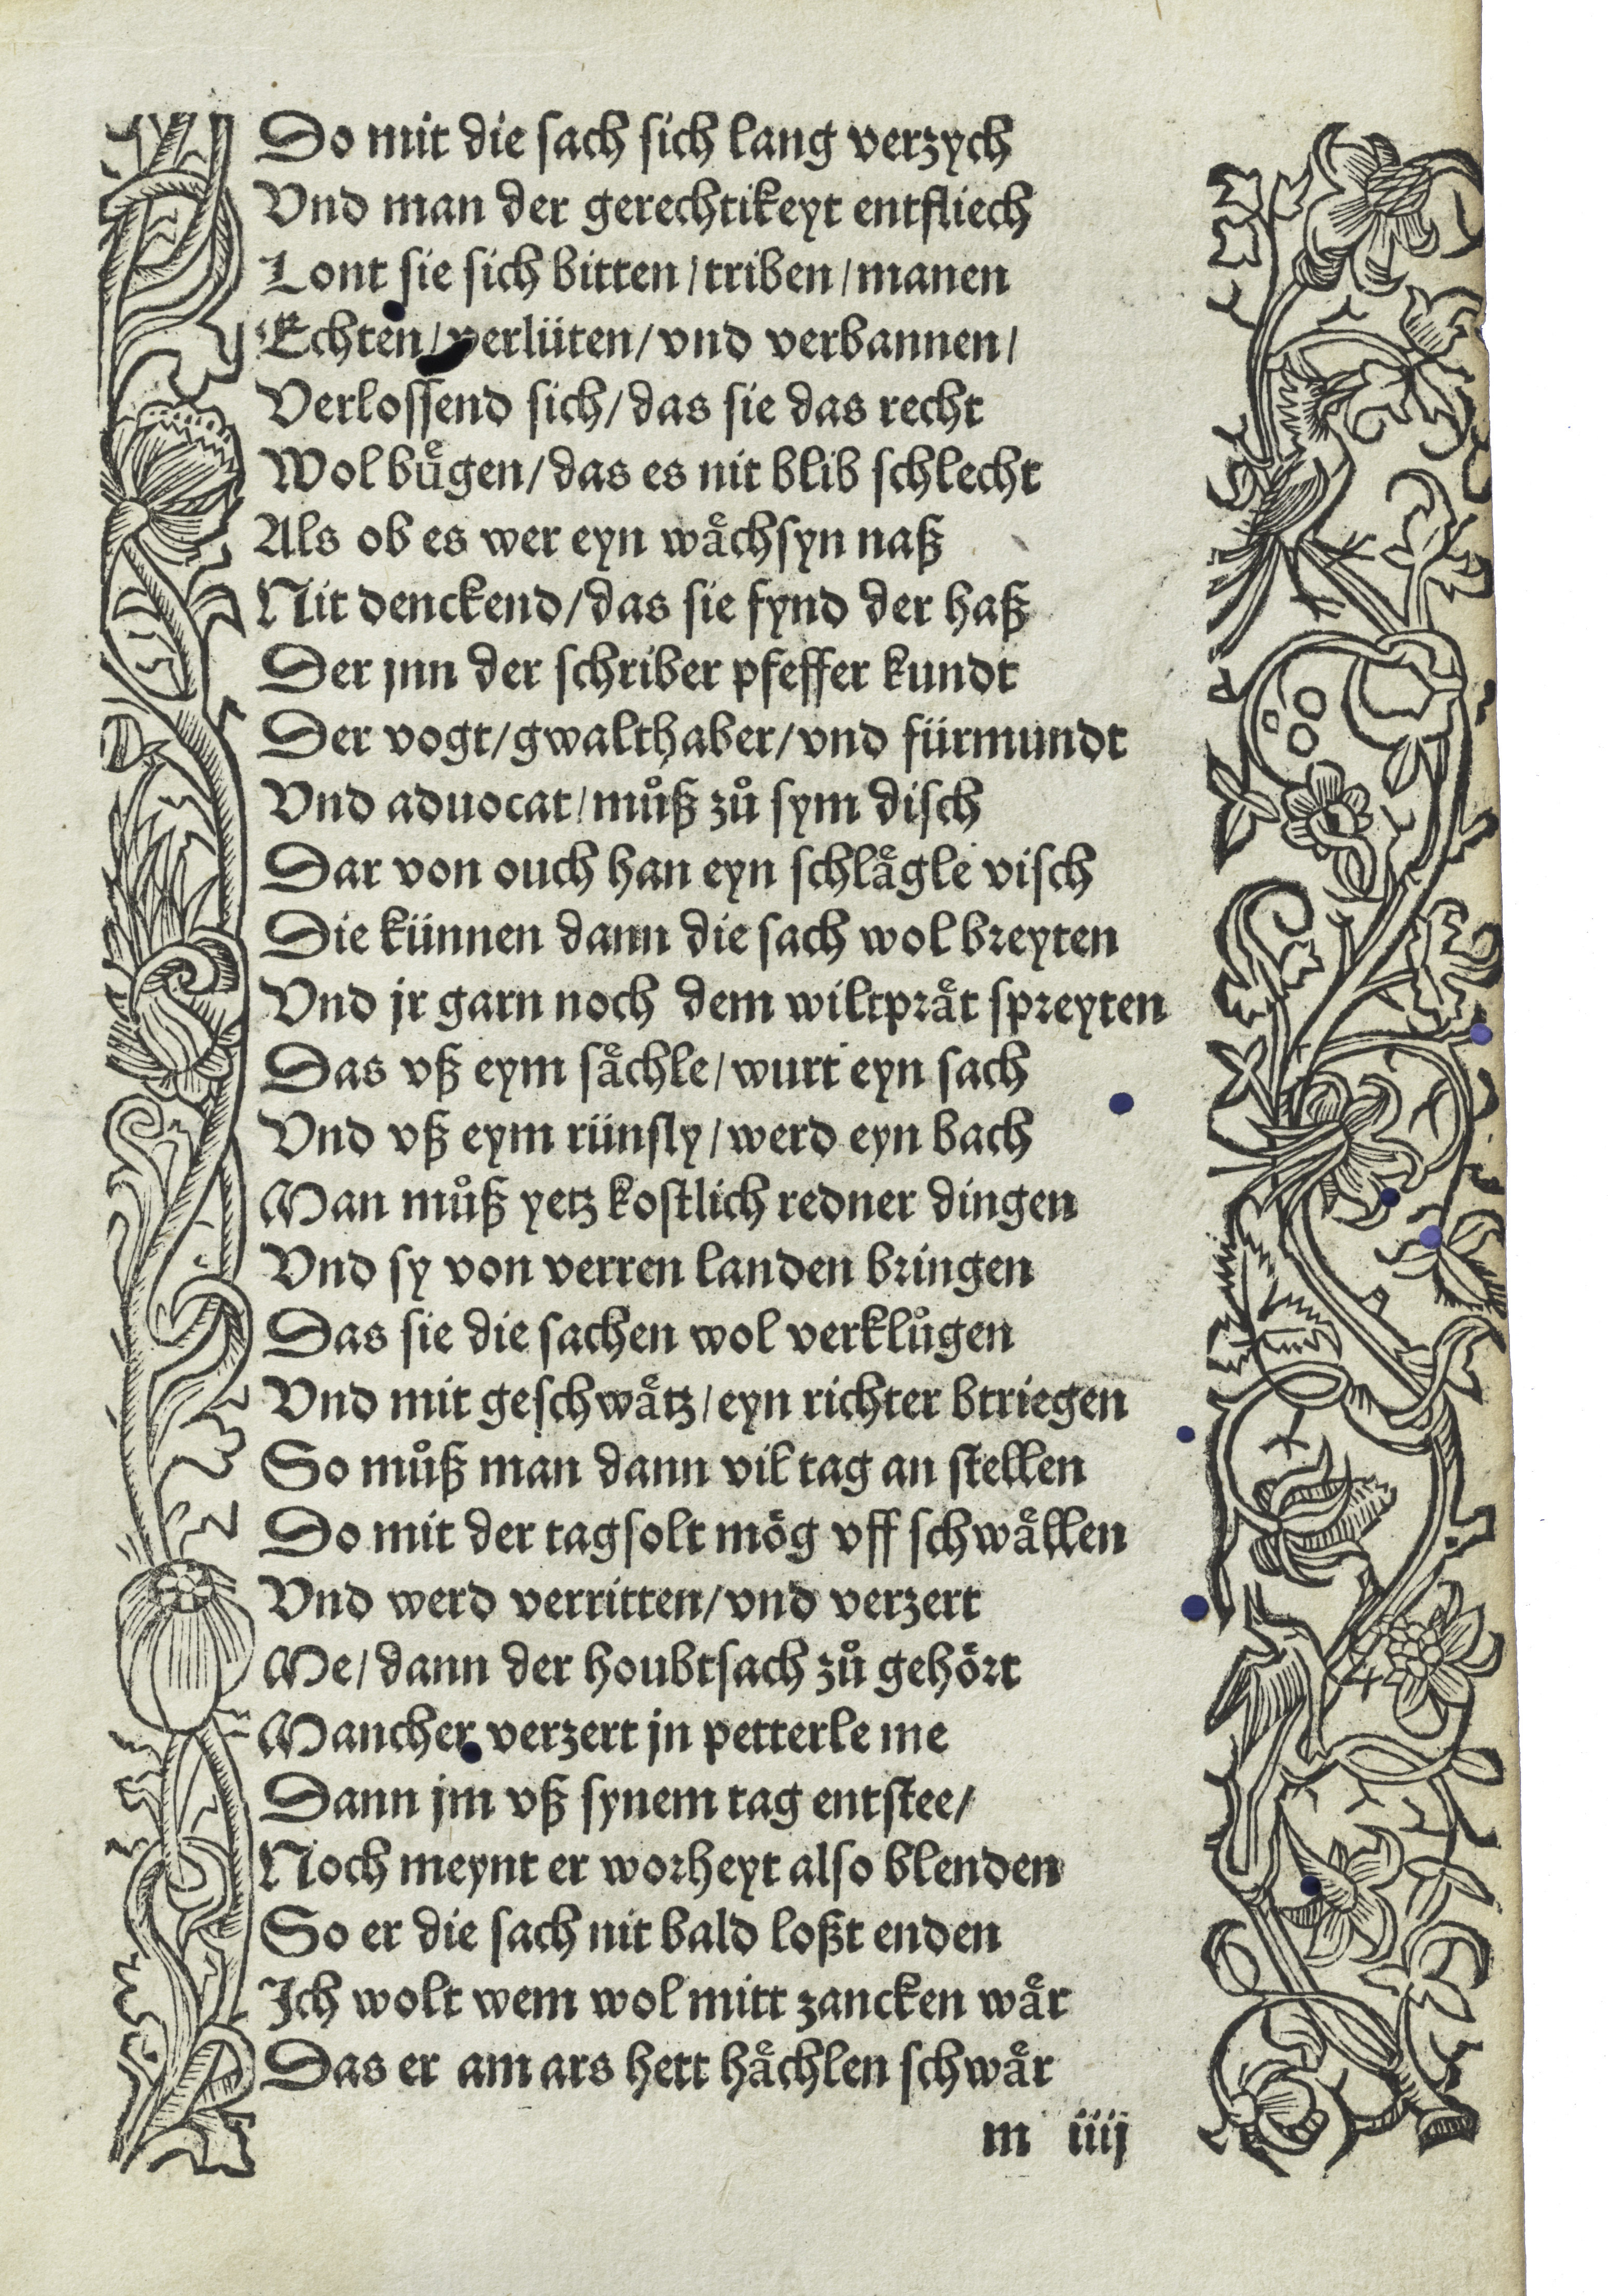 Do mit die sach sich lang verzych
Vnd man der gerechtikeyt entfliech
Lont sie sich bitten/triben/manen
Echten/verlüten/vnd verbannen/
Verlossend sich/das sie das recht
Wol buͤgen/das es nit blib schlecht
Als ob es wer eyn waͤchsyn naß
Nit denckend/das sie fynd der haß
Der jnn der schriber pfeffer kundt
Der vogt/gwalthaber/vnd fürmundt
Vnd aduocat/muͦß zuͦ sym disch
Dar von ouch han eyn schlaͤgle visch
Die künnen dann die sach wol breyten
Vnd jr garn noch dem wiltpraͤt spreyten
Das vß eym saͤchle/wurt eyn sach
Vnd vß eym rünsly/werd eyn bach
Man muͦß yetz kostlich redner dingen
Vnd sy von verren landen bringen
Das sie die sachen wol verkluͦgen
Vnd mit geschwaͤtz/eyn richter btriegen
So muͦß man dann vil tag an stellen
Do mit der tagsolt mög vff schwaͤllen
Vnd werd verritten/vnd verzert
Me/dann der houbtsach zuͦ gehört
Mancher verzert jn petterle me
Dann jm vß synem tag entstee/
Noch meynt er worheyt also blenden
So er die sach nit bald loßt enden
Ich wolt wem wol mitt zancken waͤr
Das er am ars hett haͤchlen schwaͤr
m iiij